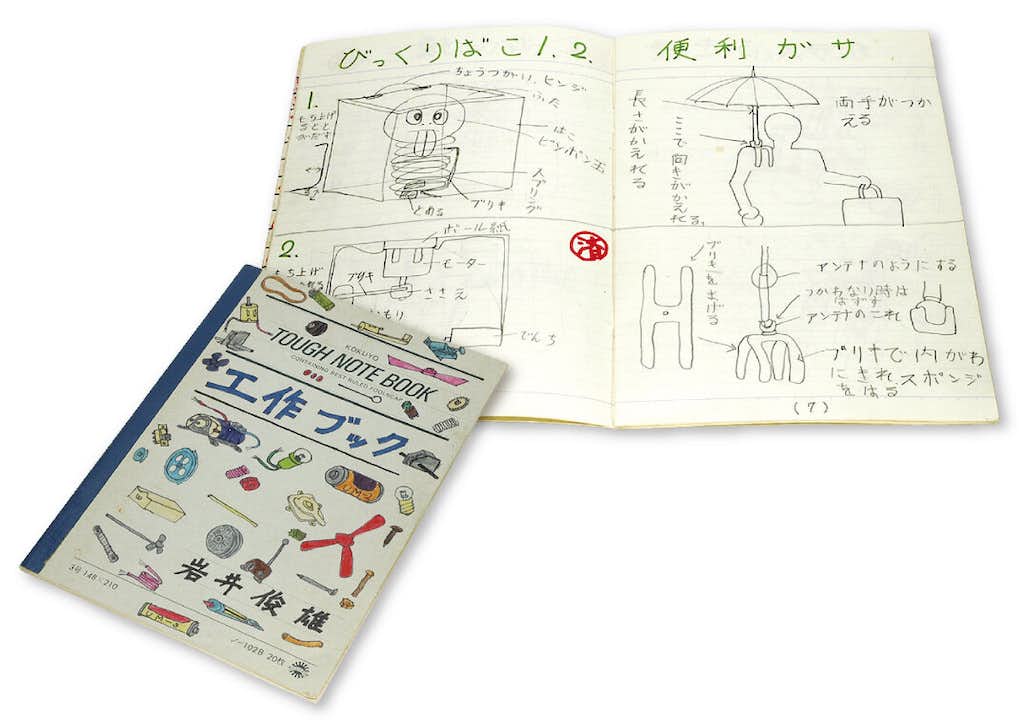 びっくりばこ1.2.
1.
ちょうつがい,ヒンジ
ふた
もち上げ
はこ
ピンポン玉
スプリング
ブリキ
とめる
2.
ボール紙
もち上げ
ブリキ
モーター
ささえ
おもり
でんち
済
便利ガサ
長さがかえれる
ここで向きがかえれる。
両手がつか
える
ブリキをまげる
アンテナのようにする
つかわない時は
はずす
アンテナのこれ
ブリキで内がわ
にきれスポンジ
をはる
(7)
KOKUYO
TOUGH NOTE BOOK
CONTAINING BEST RULED FOOLSCAP
工作ブック
UM-2
岩井俊雄
3号 148×210
UM-3
ノ-102B 20枚